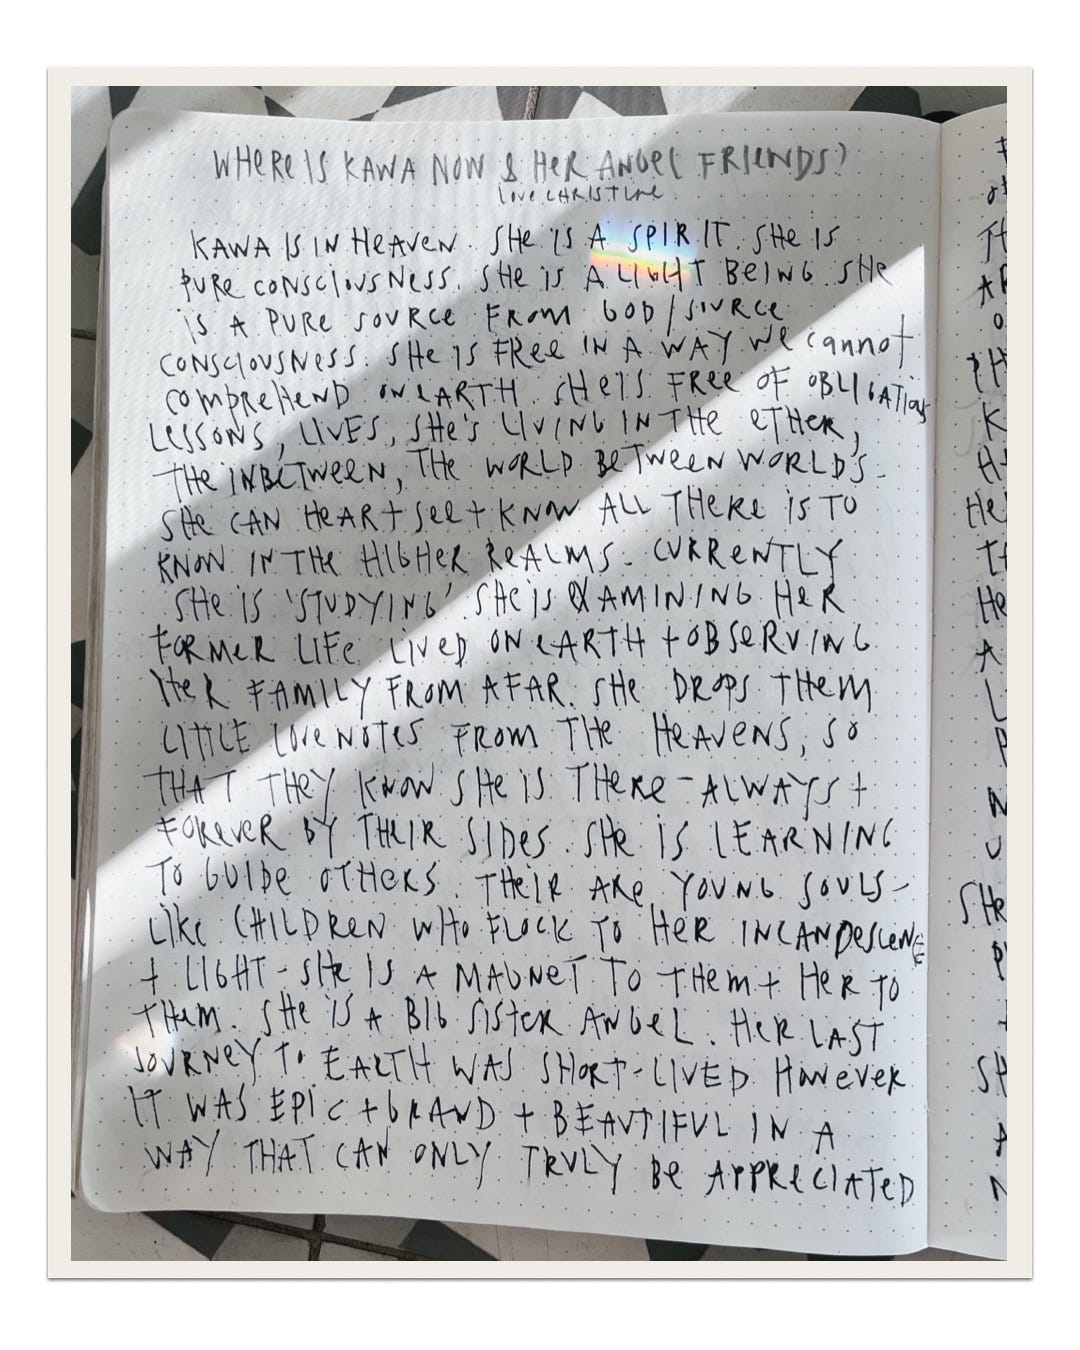 WHERE IS KAWA NOW & HER ANGEL FRIENDS?
LOVE CHRISTINE
KAWA IS IN HEAVEN. SHE IS A SPIRIT. SHE IS
PURE CONSCIOUSNESS. SHE IS A LIGHT BEING. SHE
IS A PURE SOURCE FROM GOD/SOURCE
CONSCIOUSNESS. SHE IS FREE IN A WAY WE cannot
COMPREHEND ON EARTH. SHE IS FREE OF OBLIGATIONS
LESSONS, LIVES, SHE'S LIVING IN THE ETHER,
THE INBETWEEN, THE WORLD BETWEEN WORLDS.
SHE CAN HEAR + SEE + KNOW ALL THERE IS TO
KNOW IN THE HIGHER REALMS. CURRENTLY
SHE IS 'STUDYING'. SHE IS EXAMINING HER
FORMER LIFE LIVED ON EARTH + OBSERVING
HER FAMILY FROM AFAR. SHE DROPS THEM
LITTLE LOVE NOTES FROM THE HEAVENS, SO
THAT THEY KNOW SHE IS THERE - ALWAYS +
FOREVER BY THEIR SIDES. SHE IS LEARNING
TO GUIDE OTHERS. THEIR ARE YOUNG SOULS -
LIKE CHILDREN WHO FLOCK TO HER INCANDESCENCE
+ LIGHT - SHE IS A MAGNET TO THEM + HER TO
THEM. SHE IS A BIG SISTER ANGEL. HER LAST
JOURNEY TO EARTH WAS SHORT-LIVED HOWEVER
IT WAS EPIC + GRAND + BEAUTIFUL IN A
WAY THAT CAN ONLY TRULY BE APPRECIATED